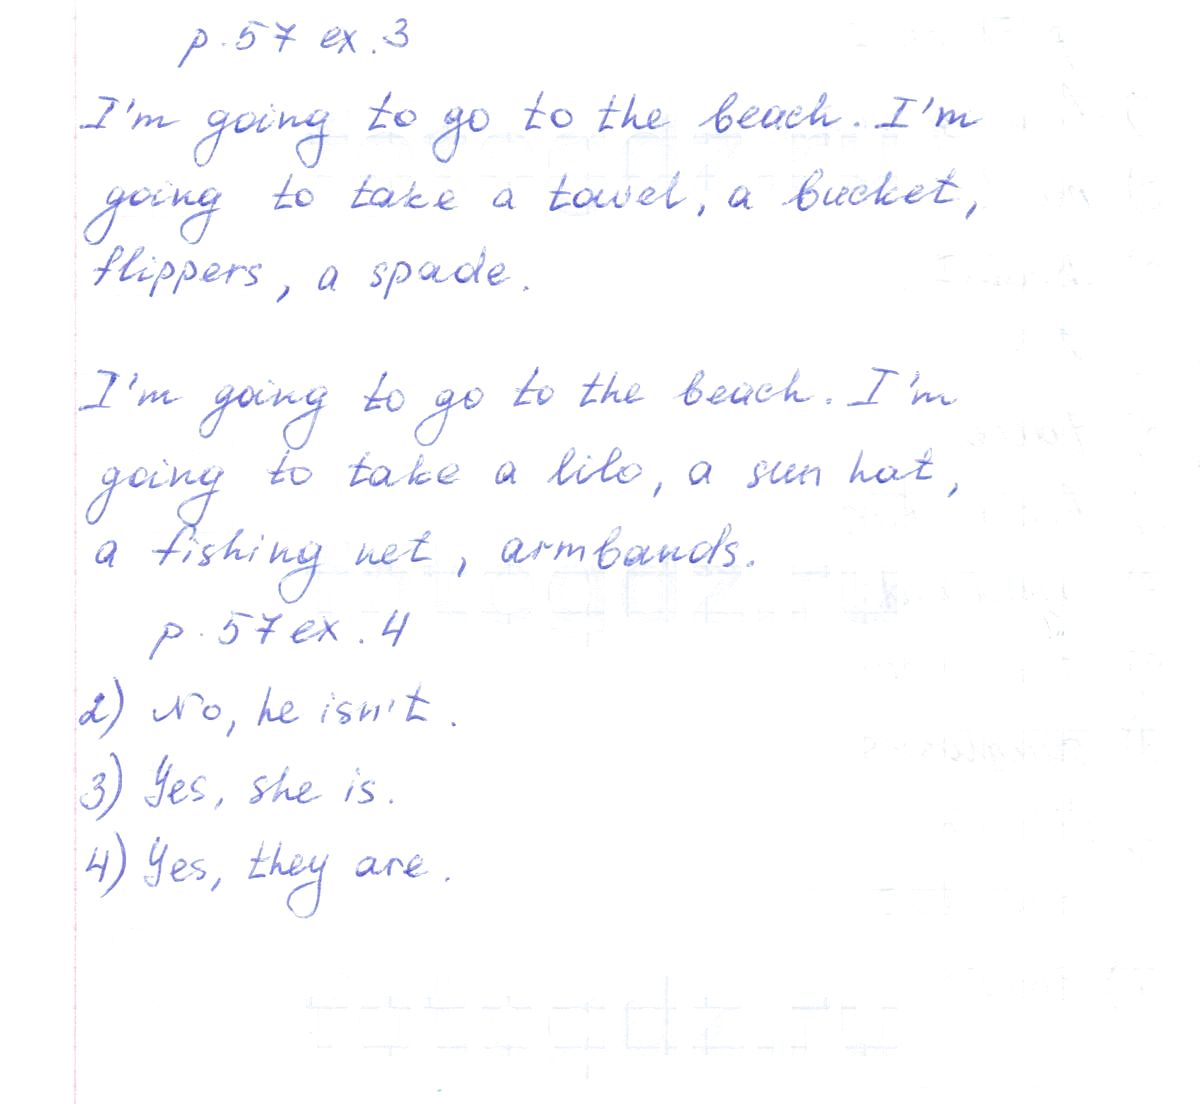 p. 57 ex. 3
I'm going to go to the beach. I'm
going to take a towel, a bucket,
flippers, a spade.
I'm going to go to the beach. I'm
going to take a lilo, a sun hat,
a fishing net, armbands.
p. 57 ex. 4
2) No, he isn't.
3) Yes, she is.
4) Yes, they are.